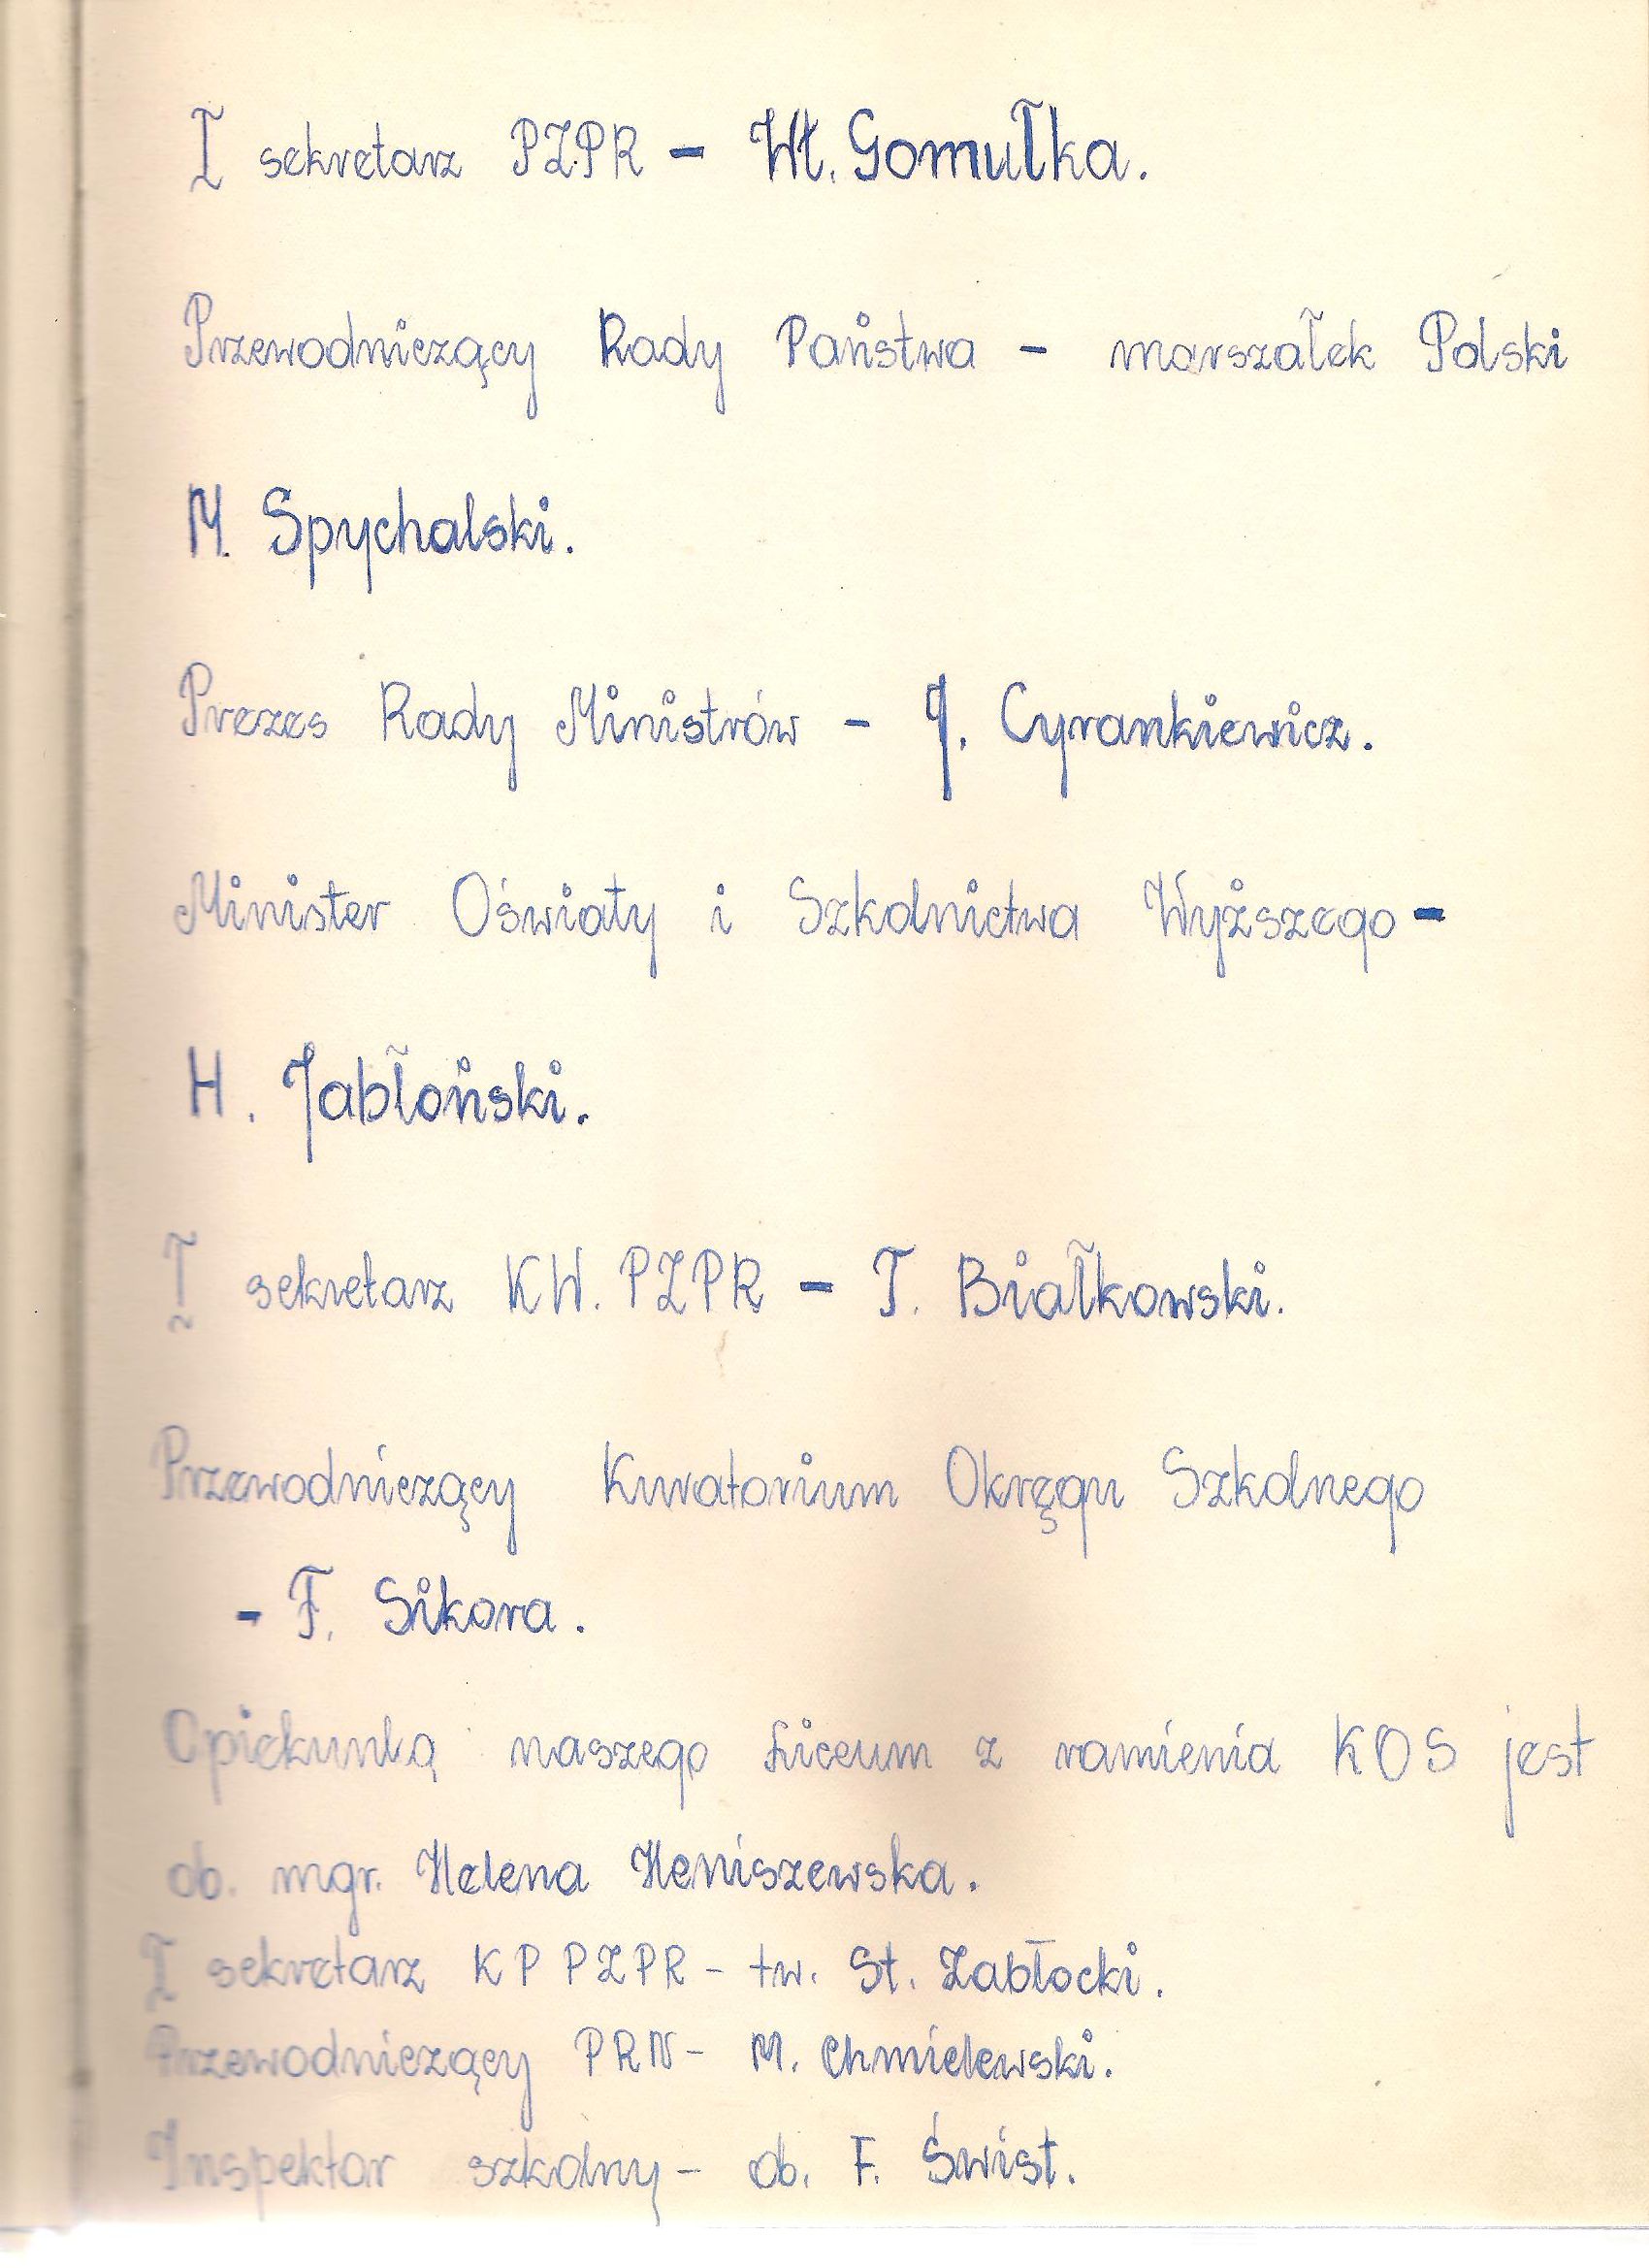 I sekretarz PZPR - Wł. Gomułka.
Przewodniczący Rady Państwa - marszałek Polski
M. Spychalski.
Prezes Rady Ministrów - J. Cyrankiewicz.
Minister Oświaty i Szkolnictwa Wyższego -
H. Jabłoński.
I sekretarz KW. PZPR - T. Białkowski.
Przewodniczący Kuratorium Okręgu Szkolnego
- F. Sikora.
Opiekunką naszego Liceum z ramienia KOS jest
ob. mgr. Helena Heniszewska.
I sekretarz KP PZPR - tw. St. Zabłocki.
Przewodniczący PRN - M. Chmielewski.
Inspektor szkolny - ob. F. Świst.